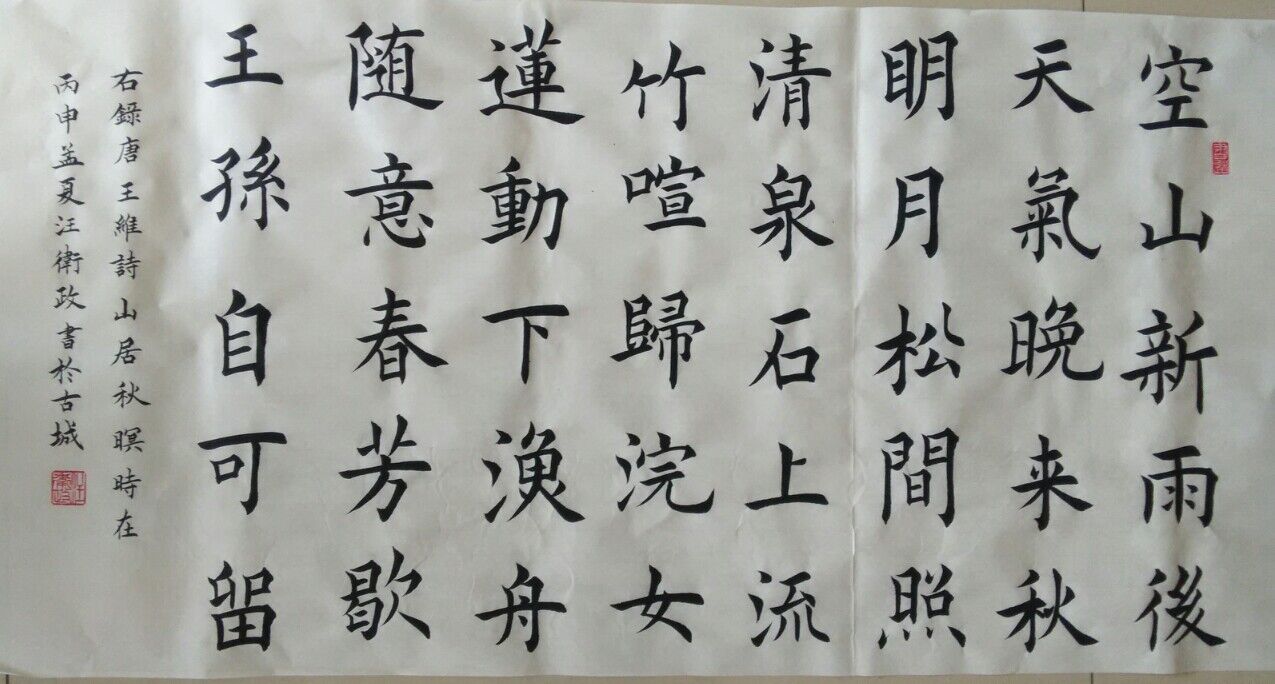 空山新雨後
天氣晚来秋
明月松間照
清泉石上流
竹喧歸浣女
蓮動下漁舟
随意春芳歇
王孫自可留
右録唐王維詩山居秋暝時在
丙申孟夏汪衛政書於古城